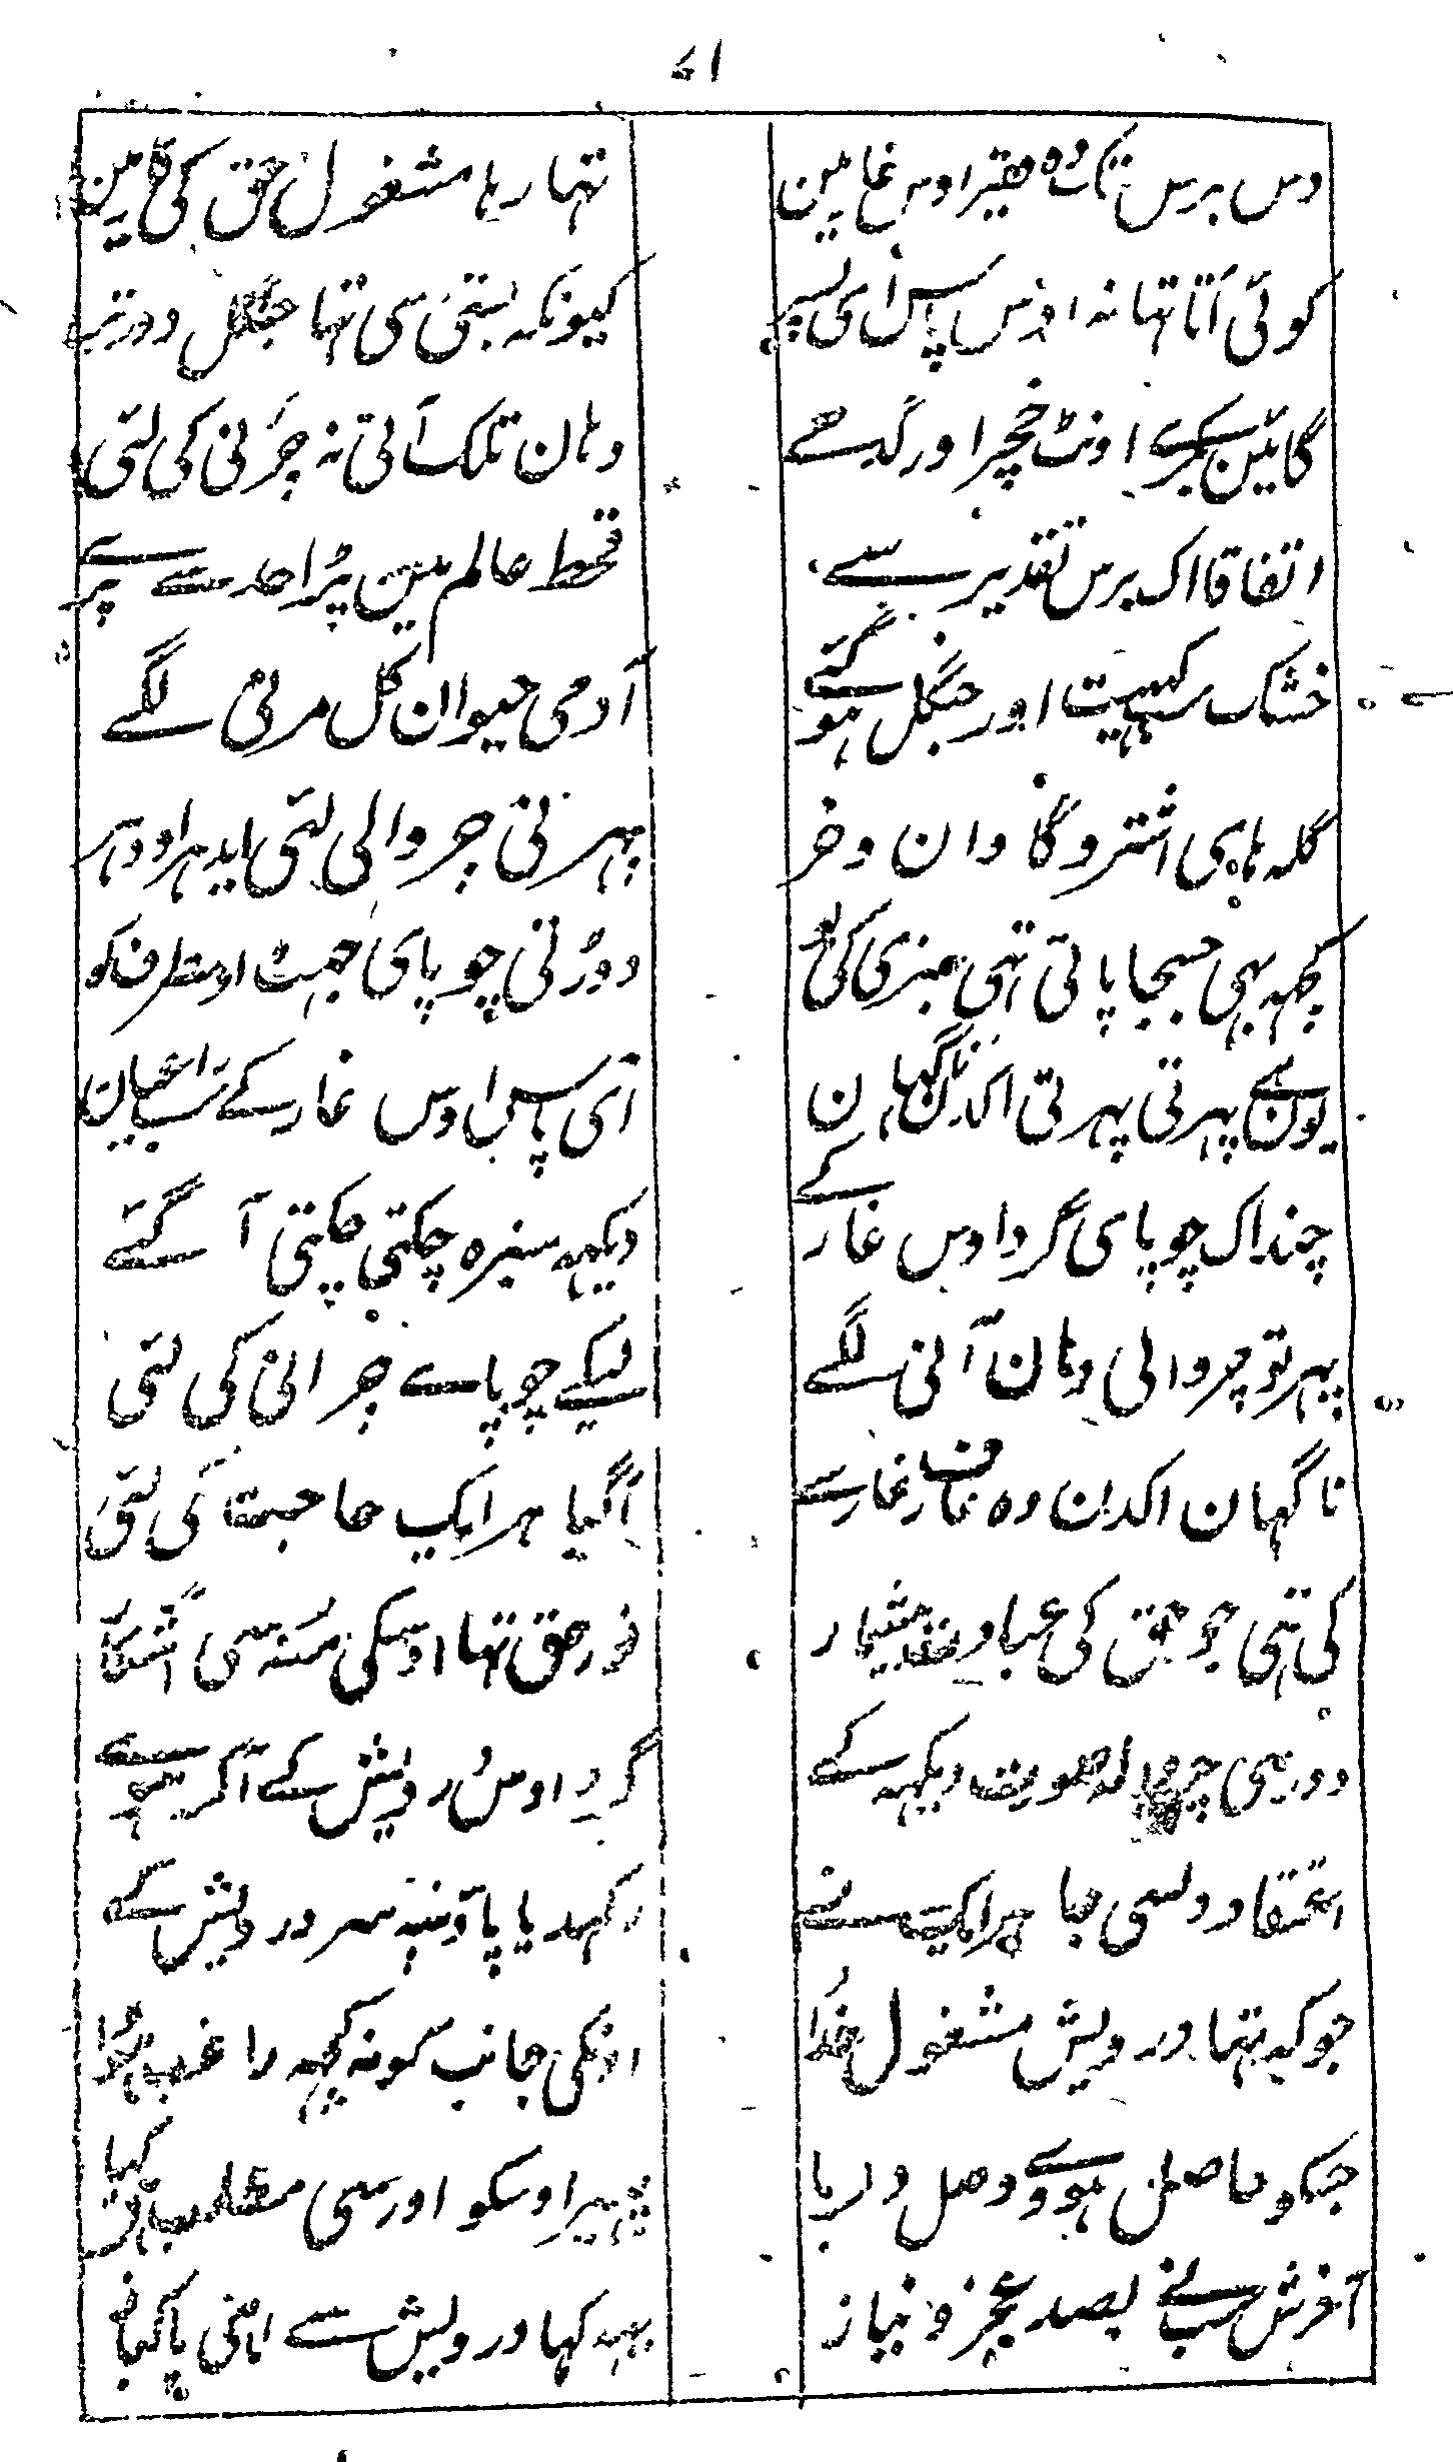 ۷۱
دس برس تک وہ فقیر اوس غار مین تہا رہا مشغول حق کی کار مین
کوئی آتا تہا نہ اوس پاس ای پسر کیونکہ بستی سی تہا جنگل دورتر
گائین بکرے اونٹ خچر اور گدہے وہان تلک آتی نہ چرنی کی لئی
اتفاقا اک برس تقدیر سے قحط عالم مین پڑا حد سے پرے
خشک کہیت اور جنگل ہو گئے آدمی حیوان کل مرنی لگے
گلہ ہای اشتر و گاوان و خر پہرتی چروالی لئی ایدہر اودہر
کچہہ بہی جسجا پاتی تہی سبزی کی بو دوڑتی چوپای جہٹ اوسطرف کو
یون ہے پہرتی پہرتی اکدن ناگہان آی پاس اوس غار کے سب راعیان
چند اک چوپای گرد اوس غار کے دیکہہ سبزہ چگتی چگتی آ گئے
پہر تو چروالی وہان آنی لگے لیکے چوپاے چرانی کی لئی
ناگہان اکدن وہ عارف غار سے آگیا ہر ایک حاجت کی لئی
کی تہی جو حق کی عبادت بیشمار نور حق تہا اوسکی منہ سی آشکار
دور سی چروالہ صورت دیکہہ کے گرد اوس درویش کے آکر ہوے
اعتقاد دلسی جا ہر ایک نے رکہدیا پاؤنپہ سر درویش کے
جو کہ تہا درویش مشغول خدا اونکی جانب کو نہ کچہہ راغب ہوا
جسکو حاصل ہووے وصل دلربا پہر اوسکو اور سی مطلب کیا
آخرش سب نے بصد عجز و نیاز یہہ کہا درویش سے ای پاکباز